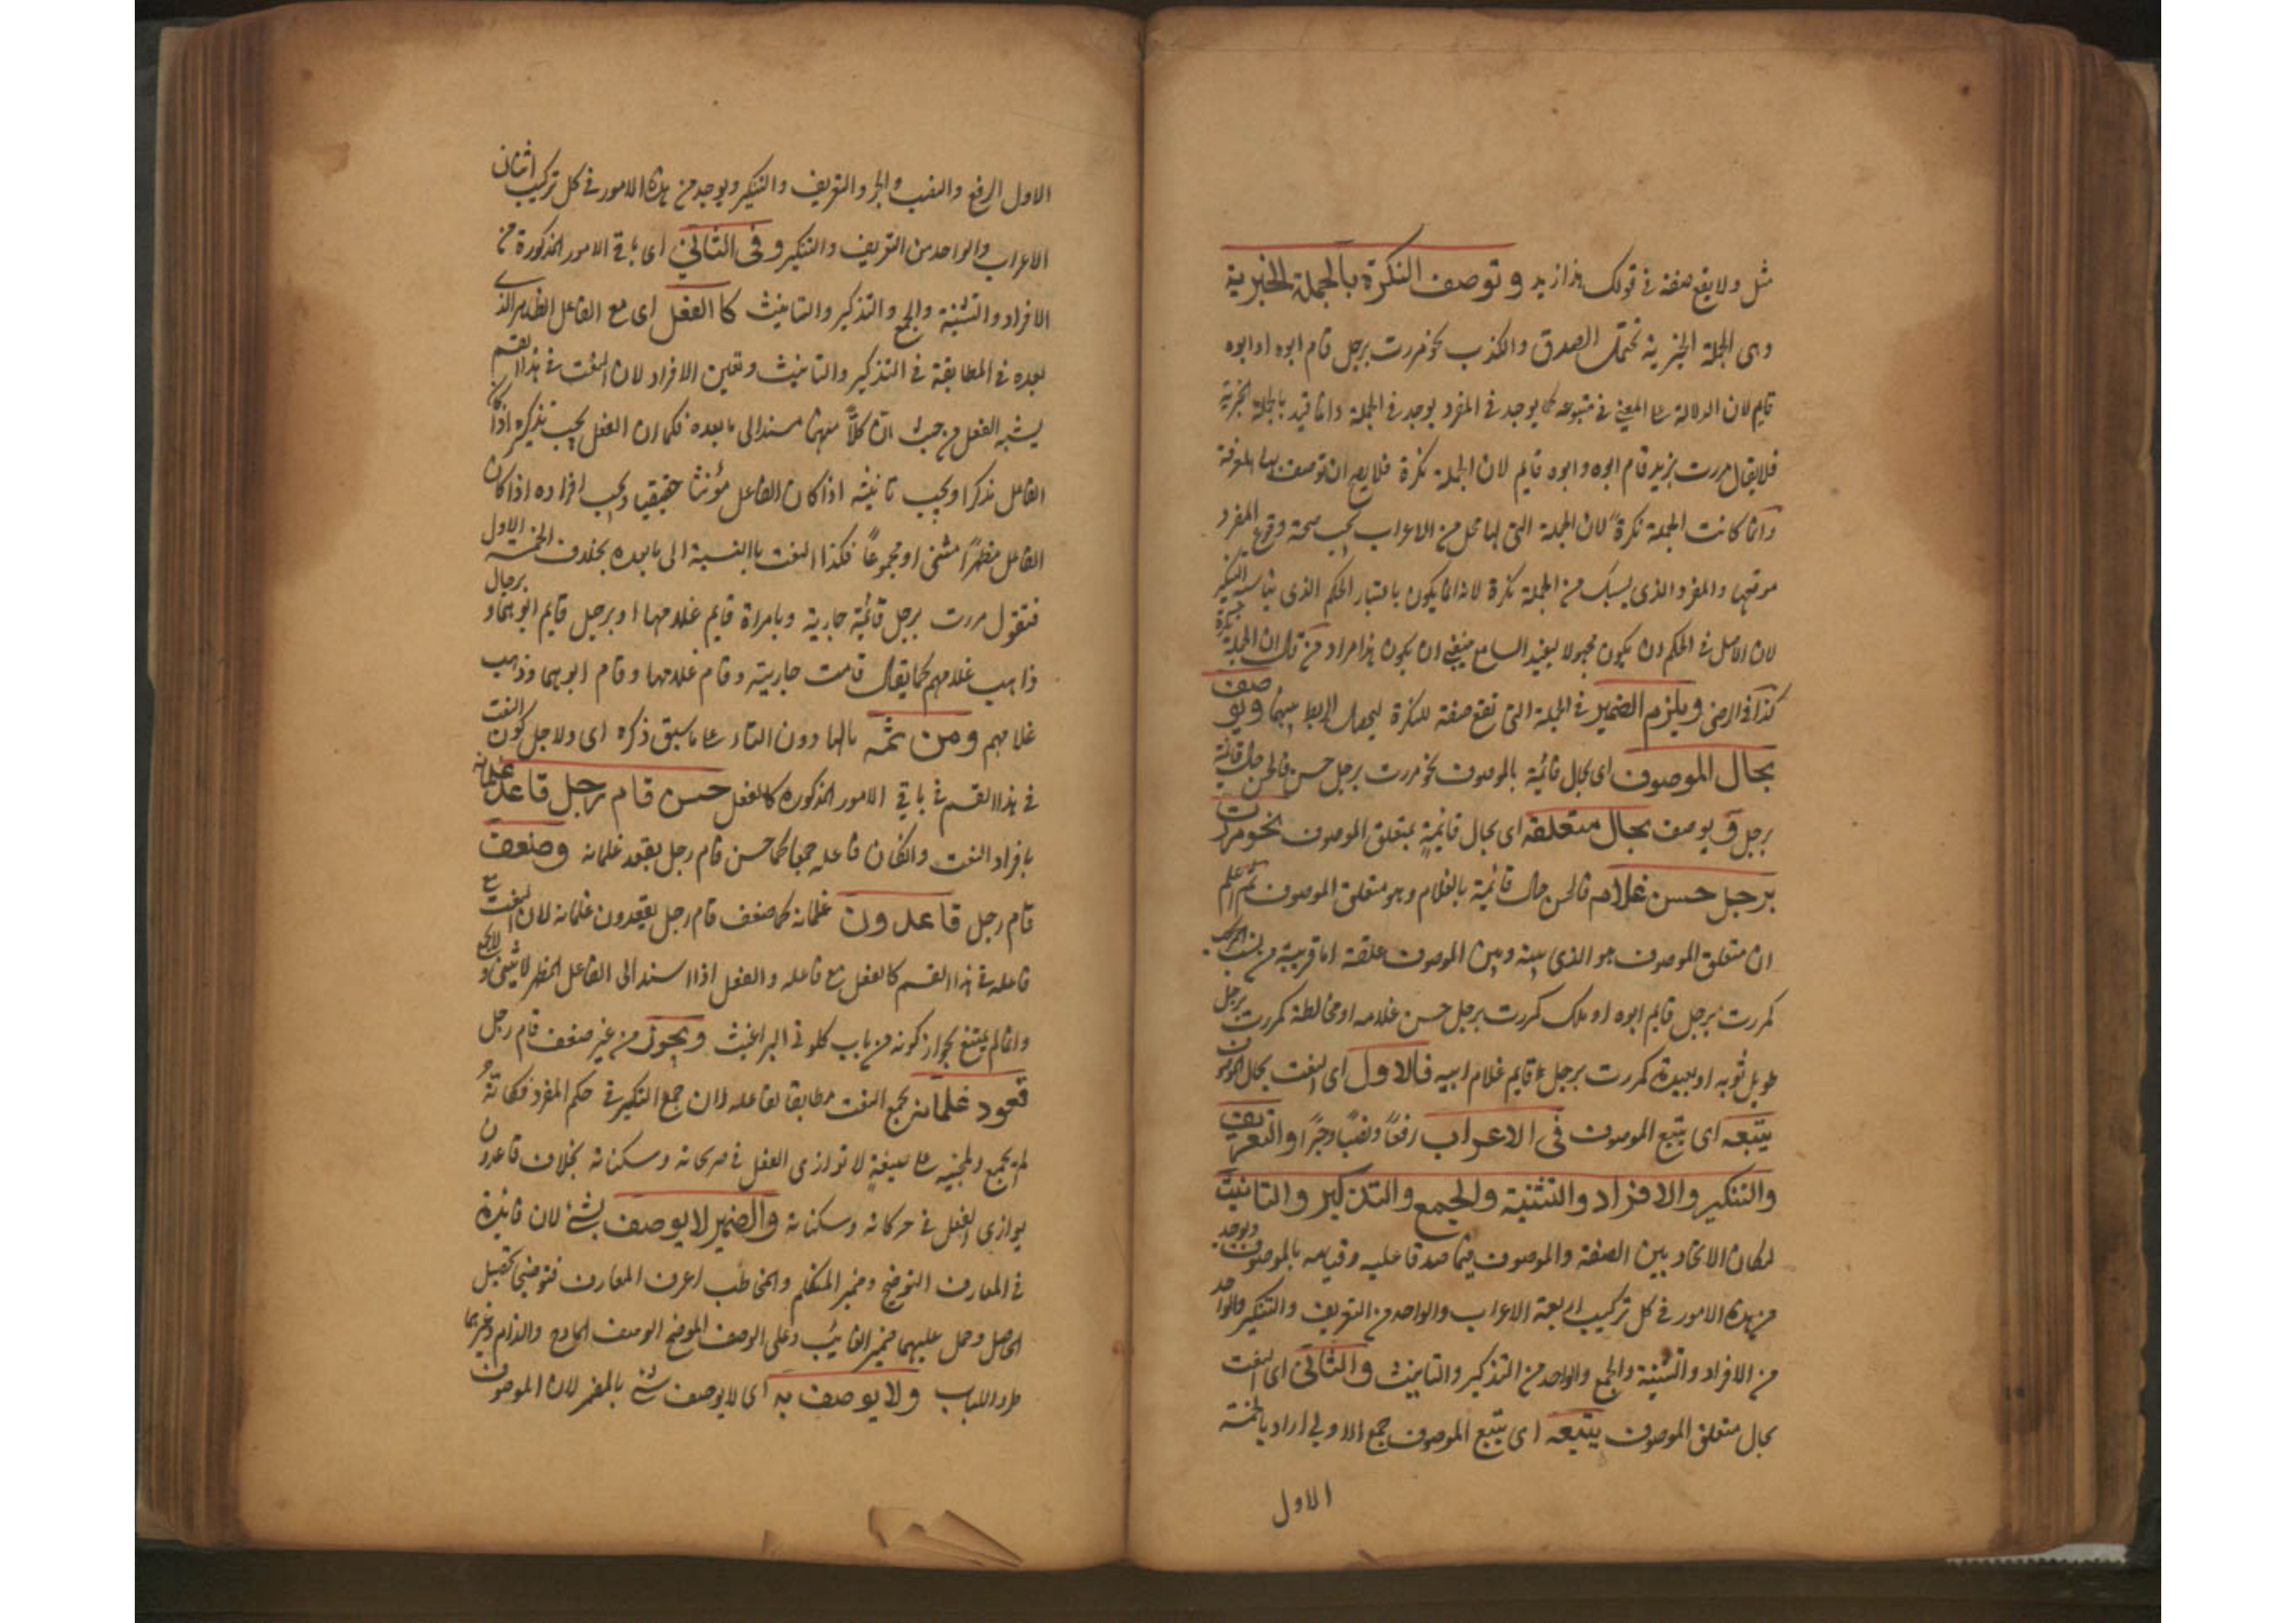 مثل ولا يقع صفة في قولك هذا زيد وتوصف النكرة بالجملة الخبرية
وهي الجملة الخبرية تحتمل الصدق والكذب نحو مررت برجل قام ابوه او ابوه
قايم لان الدلالة على المعنى في متبوعه كما يوجد في المفرد يوجد في الجملة وانما قيد بالجملة الخبرية
فلا يقال مررت بزيد قام ابوه وابوه قايم لان الجملة نكرة فلا يصح ان توصف بها المعرفة
وانما كانت الجملة نكرة لان الجملة التي لها محل من الاعراب يجب صحة وقوع المفرد
موقعها والمفرد الذي يسبك من الجملة نكرة لانه انما يكون باعتبار الحكم الذي يناسبه التنكير
لان الاصل في الحكم ان يكون مجهولا ليفيد السامع فينبغي ان يكون هذا مراد من قال ان الجملة نكرة
كذا في الرضى ويلزم الضمير في الجملة التي تقع صفة للنكرة ليحصل الربط بينهما ويوصف
بحال الموصوف اى بحال قائمة بالموصوف نحو مررت برجل حسن فالحسن حال قائمة
برجل و يوصف بحال متعلقه اى بحال قائمة بمتعلق الموصوف نحو مررت
برجل حسن غلامه فالحسن حال قائمة بالغلام وهو متعلق الموصوف ثم اعلم
ان متعلق الموصوف هو الذى بينه وبين الموصوف علقة اما قريبة من نسب
كمررت برجل قايم ابوه او ملك كمررت برجل حسن غلامه او مخالطة كمررت برجل
طويل ثوبه او بعيدة كمررت برجل قايم غلام ابيه فالاول اى النعت بحال الموصوف
يتبعه اى يتبع الموصوف فى الاعراب رفعًا ونصبًا وجرًا والتعريف
والتنكير والافراد والتثنية والجمع والتذكير والتانيث
لمكان الاتحاد بين الصفة والموصوف فيما صدقا عليه وقيامه بالموصوف ويوجد
من هذه الامور في كل تركيب اربعة الاعراب والواحد من التعريف والتنكير والواحد
من الافراد والتثنية والجمع والواحد من التذكير والتانيث والثانى اى النعت
بحال متعلق الموصوف يتبعه اى يتبع الموصوف جمع الاولى اراد بالخمسة
الاول
الاول الرفع والنصب والجر والتعريف والتنكير ويوجد من هذه الامور في كل تركيب اثنان
الاعراب والواحد من التعريف والتنكير وفى الثانى اى باقي الامور المذكورة من
الافراد والتثنية والجمع والتذكير والتانيث كالفعل اى مع الفاعل الظاهر الذى
بعده في المطابقة في التذكير والتانيث وتعين الافراد لان النعت في هذا القسم
يشبه الفعل من حيث ان كلاً منهما مسند الى ما بعده فكما ان الفعل يجب تذكيره اذا كان
الفاعل مذكرا ويجب تانيثه اذا كان الفاعل مؤنثا حقيقيا ويجب افراده اذا كان
الفاعل مظهرًا مثنى او مجموعًا فكذا النعت بالنسبة الى ما بعده بخلاف الخمسة الاول
فتقول مررت برجل قائمة جارية وبامراة قايم غلامها او برجل قايم ابوهما و برجال
ذاهب غلامهم كما يقال قامت جاريته وقام غلامها وقام ابوهما وذهب
غلامهم ومن ثمه بالهاء دون التاء على ما سبق ذكره اى ولاجل كون النعت
في هذا القسم في باقي الامور المذكورة كالفعل حسن قام رجل قاعد غلمانه
بافراد النعت وان كان فاعله جمعا كما حسن قام رجل يقعد غلمانه وضعف
قام رجل قاعدون غلمانه كما ضعف قام رجل يقعدون غلمانه لان النعت مع
فاعله في هذا القسم كالفعل مع فاعله والفعل اذا اسند الى الفاعل المظهر لا يثنى ولا يجمع
وانما لم يمتنع لجواز كونه من باب اكلوني البراغيث ويجوز من غير ضعف قام رجل
قعود غلمانه بجمع النعت مطابقا لفاعله لان جمع التكسير في حكم المفرد فكانه
لم يجمع ولمجيئه على صيغة لا توازى الفعل في حركاته وسكناته بخلاف قاعدون
يوازى الفعل في حركاته وسكناته والضمير لا يوصف بشئ لان فائدة
في المعارف التوضيح وضمير المتكلم والمخاطب اعرف المعارف فتوضيحها تحصيل
الحاصل وحمل عليهما ضمير الغائب وعلى الوصف الموضح الوصف المادح والذام وغيرهما
طرد اللباب ولا يوصف به اى لا يوصف شئ بالمضمر لان الموصوف